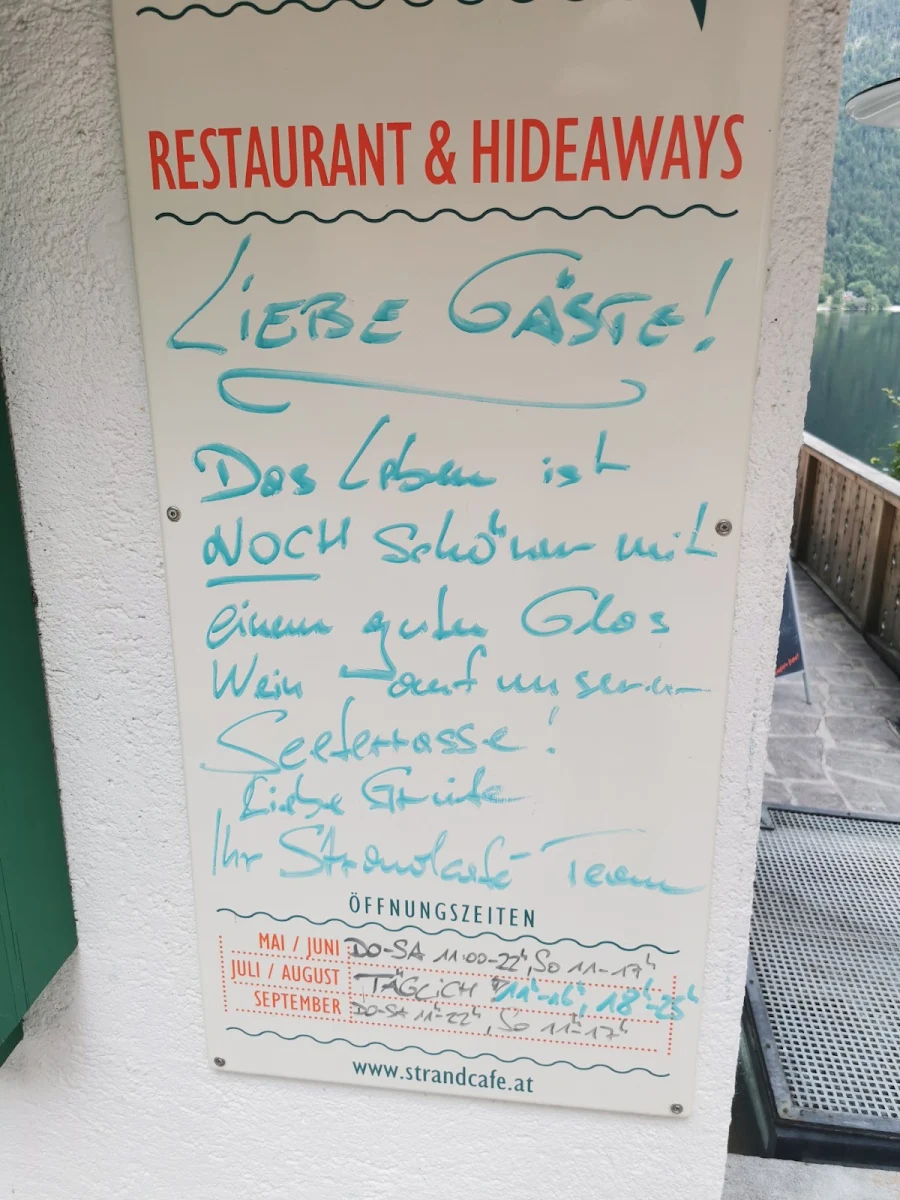 RESTAURANT & HIDEAWAYS
LIEBE GÄSTE!
Das Leben ist
NOCH schöner mit
einem guten Glas
Wein – auf unserer
Seeterrasse!
Liebe Grüße
Ihr Strandcafé Team
ÖFFNUNGSZEITEN
MAI / JUNI DO-SA 11:00-22h, SO 11-17h
JULI / AUGUST TÄGLICH 11h-16h, 18h-23h
SEPTEMBER DO-SA 11h-22h, SO 11h-17h
www.strandcafe.at